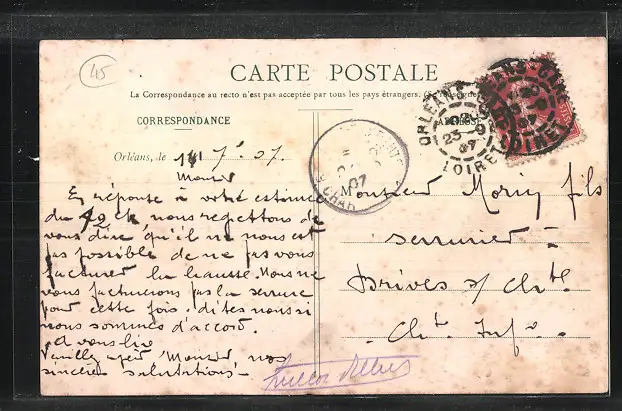 45
CARTE POSTALE
La Correspondance au recto n'est pas acceptée par tous les pays étrangers. (Se renseigner
CORRESPONDANCE
ORLEANS
LOIRET
Orléans, le 7 07.
Monsieur
En réponse à votre estimée
du ct, nous regrettons de
vous dire, qu'il ne nous est
pas possible de ne pas vous
facturer la hausse. Nous ne
vous facturerons pas la serrure
pour cette fois. dites nous si
nous sommes d'accord.
A vous lire
Veuillez agréer Monsieur nos
sincères salutations.
Monsieur Moriy fils
serrurier
Brives s/ Chte
Chte Infre